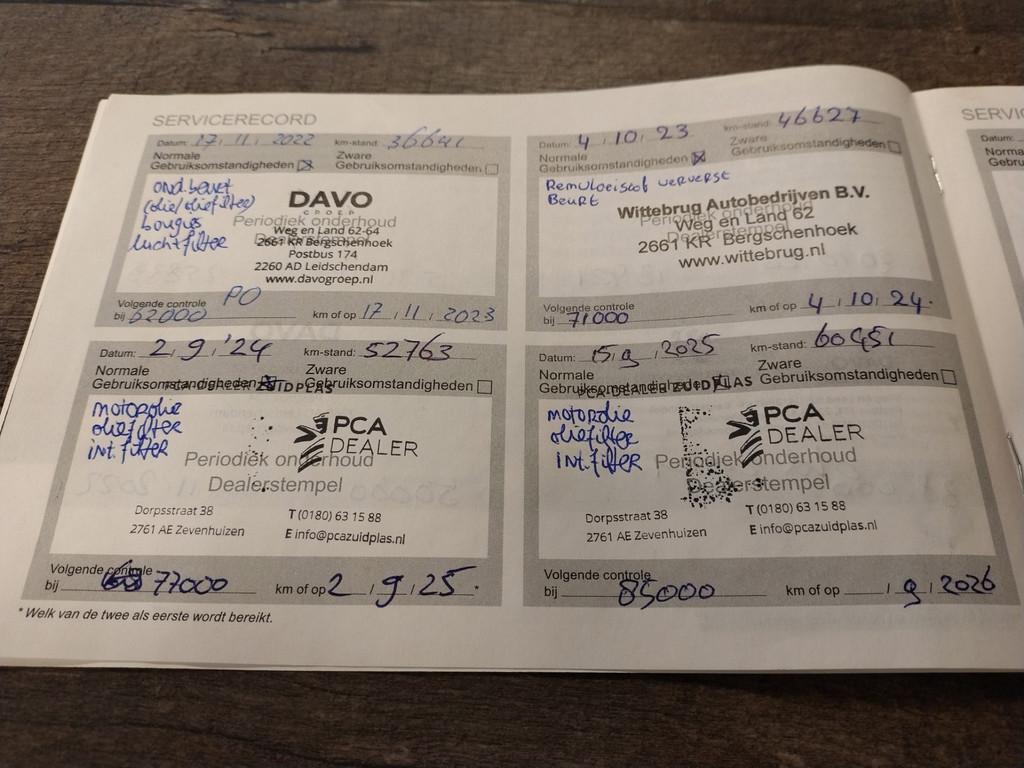 SERVICERECORD
Datum: 17, 11, 2022 km-stand: 36641
Normale Gebruiksomstandigheden Zware Gebruiksomstandigheden
ond.beurt
(olie/oliefilter)
bougies
luchtfilter
DAVO
GROEP
Periodiek onderhoud
Dealerstempel
Weg en Land 62-64
2661 KR Bergschenhoek
Postbus 174
2260 AD Leidschendam
www.davogroep.nl
PO
Volgende controle
bij 62000 km of op 17, 11, 2023
Datum: 4, 10, 23 km-stand: 46627
Normale Gebruiksomstandigheden Zware Gebruiksomstandigheden
Remvloeistof ververst
Beurt
Wittebrug Autobedrijven B.V.
Periodiek onderhoud
Weg en Land 62
Dealerstempel
2661 KR Bergschenhoek
www.wittebrug.nl
Volgende controle
bij 71000 km of op 4, 10, 24.
Datum: 2, 9, '24 km-stand: 52763
Normale Gebruiksomstandigheden Zware Gebruiksomstandigheden
PCA DEALER ZUIDPLAS
motorolie
oliefilter
int. filter
PCA
DEALER
Periodiek onderhoud
Dealerstempel
Dorpsstraat 38 T (0180) 63 15 88
2761 AE Zevenhuizen E info@pcazuidplas.nl
Volgende controle
bij 77000 km of op 2, 9, 25.*
Datum: 15, 9, 2025 km-stand: 60951
Normale Gebruiksomstandigheden Zware Gebruiksomstandigheden
PCA DEALER ZUIDPLAS
motorolie
oliefilter
int. filter
PCA
DEALER
Periodiek onderhoud
Dealerstempel
Dorpsstraat 38 T (0180) 63 15 88
2761 AE Zevenhuizen E info@pcazuidplas.nl
Volgende controle
bij 85000 km of op , 9, 2026
* Welk van de twee als eerste wordt bereikt.